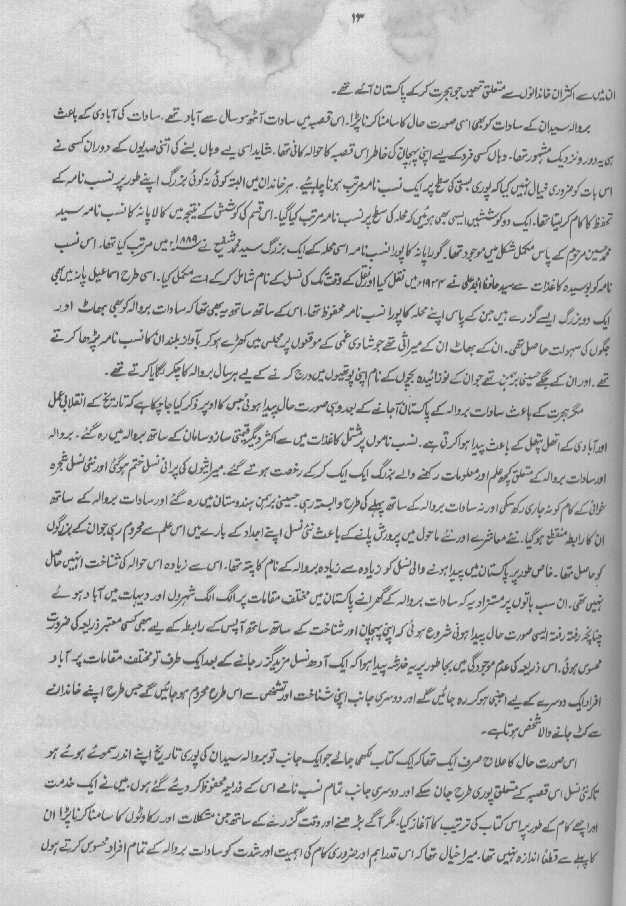 ۱۳
ان میں سے اکثر ان خاندانوں سے متعلق تھیں جو ہجرت کر کے پاکستان آئے تھے۔
بروالہ سیدان کے سادات کو بھی اسی صورت حال کا سامنا کرنا پڑا۔ اس قصبہ میں سادات آٹھ سو سال سے آباد تھے۔ سادات کی آبادی کے باعث
ہی یہ دور و نزدیک مشہور تھا۔ وہاں کسی فرد کے لیے اپنی پہچان کی خاطر اس قصبہ کا حوالہ کافی تھا۔ شاید اسی لیے وہاں بسنے کی اتنی صدیوں کے دوران کسی نے
اس بات کو ضروری خیال نہیں کیا کہ پوری بستی کی سطح پر ایک نسب نامہ مرتب ہونا چاہئیے۔ ہر خاندان میں البتہ کوئی نہ کوئی بزرگ اپنے طور پر نسب نامہ کے
تحفظ کا کام کر لیتا تھا۔ ایک دو کوششیں ایسی بھی ہوئیں کہ محلہ کی سطح پر نسب نامہ مرتب کیا گیا۔ اس قسم کی کوشش کے نتیجہ میں کالا پانہ کا نسب نامہ سید
محمد حسین مرحوم کے پاس مکمل شکل میں موجود تھا۔ گورا پانہ کا پورا نسب نامہ اسی محلہ کے ایک بزرگ سید محمد شفیع نے ۱۸۸۹ء میں مرتب کیا تھا۔ اس نسب
نامہ کو بوسیدہ کاغذات سے سید حافظ امجد علی نے ۱۹۲۴ء میں نقل کیا اور نقل کے وقت تک کی نسل کے نام شامل کر کے اسے مکمل کیا۔ اسی طرح اسماعیل پانہ میں بھی
ایک دو بزرگ ایسے گزرے ہیں جن کے پاس اپنے محلہ کا پورا نسب نامہ محفوظ تھا۔ اس کے ساتھ ساتھ یہ بھی تھا کہ سادات بروالہ کو بھی بھاٹ اور
جگوں کی سہولت حاصل تھی۔ ان کے بھاٹ ان کے میراثی تھے جو شادی غمی کے موقعوں پر مجلس میں کھڑے ہو کر بآواز بلند ان کا نسب نامہ پڑھا کرتے
تھے۔ اور ان کے جگے حسینی برہمن تھے جو ان کے نوزائیدہ بچوں کے نام اپنی پوتھیوں میں درج کرنے کے لیے ہر سال بروالہ کا چکر لگایا کرتے تھے۔
مگر ہجرت کے باعث سادات بروالہ کے پاکستان آ جانے کے بعد وہی صورت حال پیدا ہوئی جس کا اوپر ذکر کیا جا چکا ہے کہ تاریخ کے انقلابی عمل
اور آبادی کے اتھل پتھل کے باعث پیدا ہوا کرتی ہے۔ نسب ناموں پر مشتمل کاغذات میں سے اکثر دیگر قیمتی ساز و سامان کے ساتھ بروالہ میں رہ گئے۔ بروالہ
اور سادات بروالہ کے متعلق کچھ علم اور معلومات رکھنے والے بزرگ ایک ایک کر کے رخصت ہوتے گئے۔ میراثیوں کی پرانی نسل ختم ہو گئی اور نئی نسل شجرہ
خوانی کے کام کو نہ جاری رکھ سکی اور نہ سادات بروالہ کے ساتھ پہلے کی طرح وابستہ رہی۔ حسینی برہمن ہندوستان میں رہ گئے اور سادات بروالہ کے ساتھ
ان کا رابطہ منقطع ہو گیا۔ نئے معاشرے اور نئے ماحول میں پرورش پانے کے باعث نئی نسل اپنے اجداد کے بارے میں اس علم سے محروم رہی جو ان کے بزرگوں
کو حاصل تھا۔ خاص طور پر پاکستان میں پیدا ہونے والی نسل کو زیادہ سے زیادہ بروالہ کے نام کا پتہ تھا۔ اس سے زیادہ اس حوالہ کی شناخت انہیں حاصل
نہیں تھی۔ ان سب باتوں پر مستزاد یہ کہ سادات بروالہ کے گھرانے پاکستان میں مختلف مقامات پر الگ الگ شہروں اور دیہات میں آباد ہوئے
چنانچہ رفتہ رفتہ ایسی صورت حال پیدا ہونی شروع ہوئی کہ اپنی پہچان اور شناخت کے ساتھ ساتھ آپس کے رابطہ کے لیے بھی کسی معتبر ذریعہ کی ضرورت
محسوس ہوئی۔ اس ذریعہ کی عدم موجودگی میں بجا طور پر یہ خدشہ پیدا ہوا کہ ایک آدھ نسل مزید گزر جانے کے بعد ایک طرف تو مختلف مقامات پر آباد
افراد ایک دوسرے کے لیے اجنبی ہو کر رہ جائیں گے اور دوسری جانب اپنی شناخت اور تشخص سے اس طرح محروم ہو جائیں گے جس طرح اپنے خاندان
سے کٹ جانے والا شخص ہوتا ہے۔
اس صورت حال کا علاج صرف ایک تھا کہ ایک کتاب لکھی جائے جو ایک جانب تو بروالہ سیدان کی پوری تاریخ اپنے اندر سموئے ہوئے ہو
تاکہ نئی نسل اس قصبہ کے متعلق پوری طرح جان سکے اور دوسری جانب تمام نسب نامے اس کے ذریعہ محفوظ کر دیئے گئے ہوں۔ میں نے ایک خدمت
اور اچھے کام کے طور پر اس کتاب کی ترتیب کا آغاز کیا۔ مگر آگے بڑھنے اور وقت گزرنے کے ساتھ جن مشکلات اور رکاوٹوں کا سامنا کرنا پڑا ان
کا پہلے سے قطعاً اندازہ نہیں تھا۔ میرا خیال تھا کہ اس قدر اہم اور ضروری کام کی اہمیت اور شدت کو سادات بروالہ کے تمام افراد محسوس کرتے ہوں